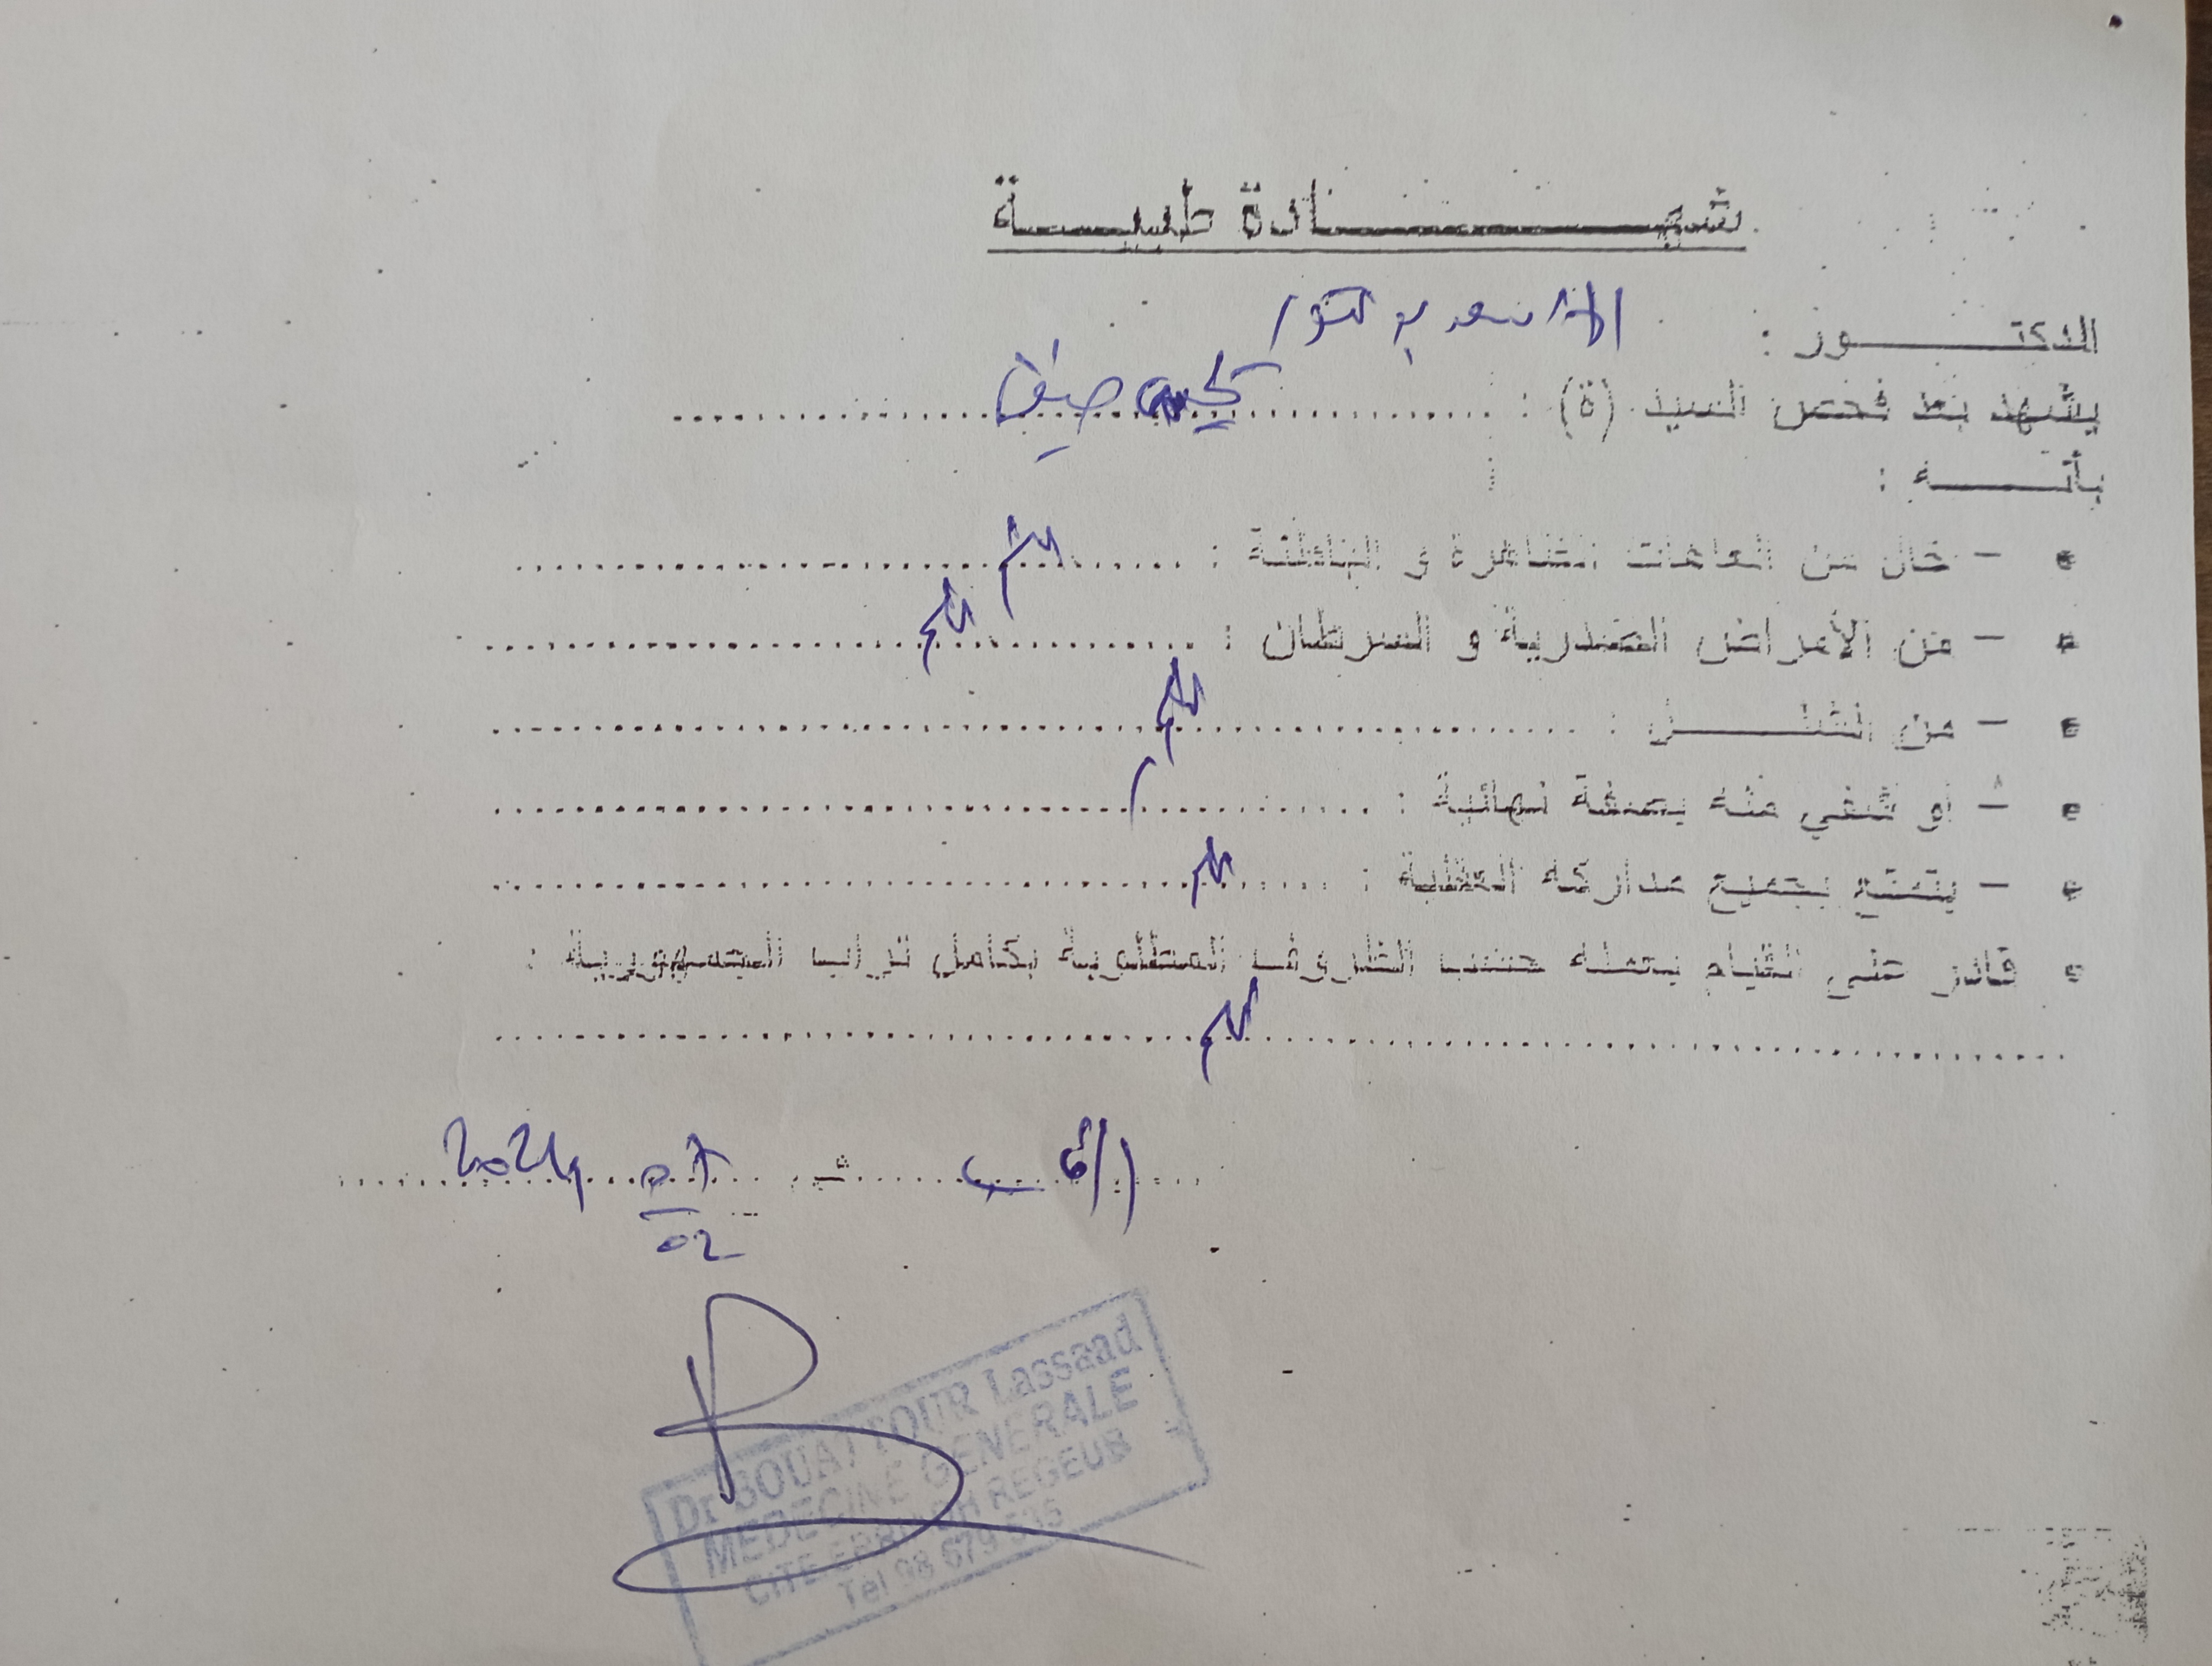 شهـــــادة طبيـــة
الدكتـــــور : الأسعد بوعتور
يشهد بعد فحص السيد (ة) :
بأنـــــه :
• – خال من العاهات الظاهرة و الباطنة :
• – من الأمراض الصدرية و السرطان :
• – من الشلـــــل :
• – أو شفي منه بصفة نهائية : /
• – يتمتع بجميع مداركه العقلية :
• قادر على القيام بعمله حسب الظروف المطلوبة بكامل تراب الجمهورية :
الرقاب في 07/02 2024
Dr BOUATTOUR Lassaad
MEDECINE GENERALE
CITE ERRIADH REGEUB
Tel 98 679